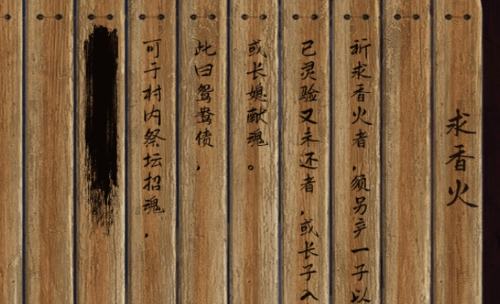 求香火
祈求香火者，须另弃一子以
已灵验又未还者，或长子入
或长媳献魂。
此曰鸳鸯债，
可于村内祭坛招魂，